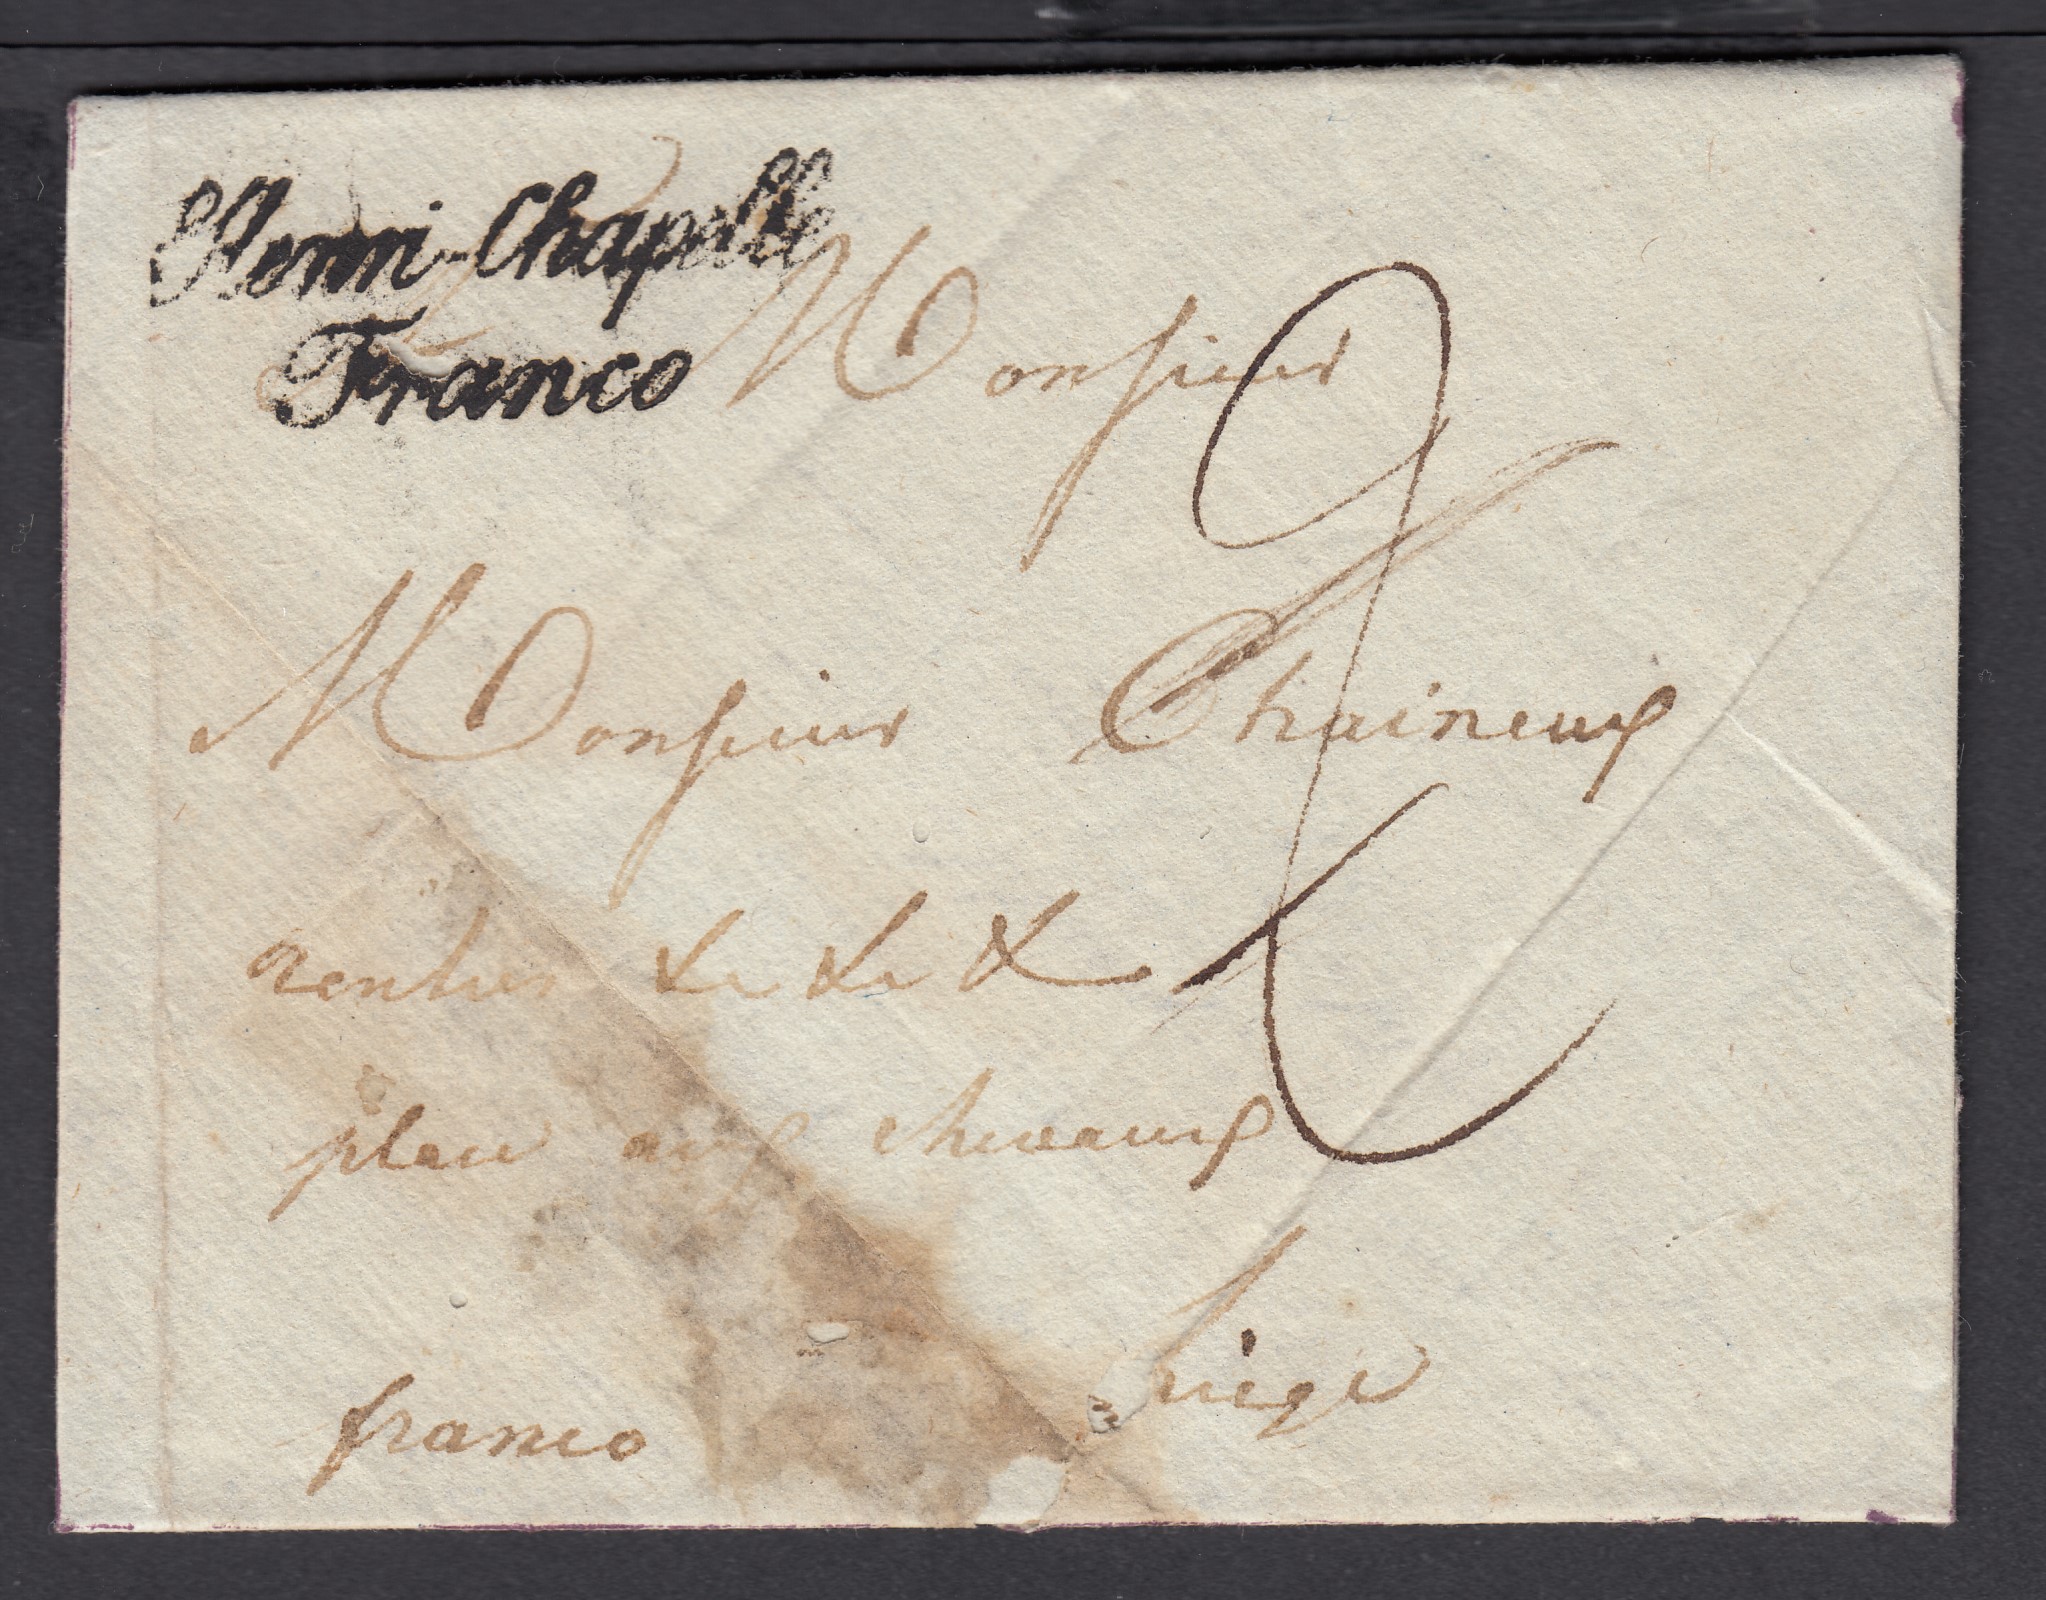 Henri-Chapelle
Franco
Monsieur
Monsieur Chaineux
rentier &c &c &
place aux chevaux
Liége
franco